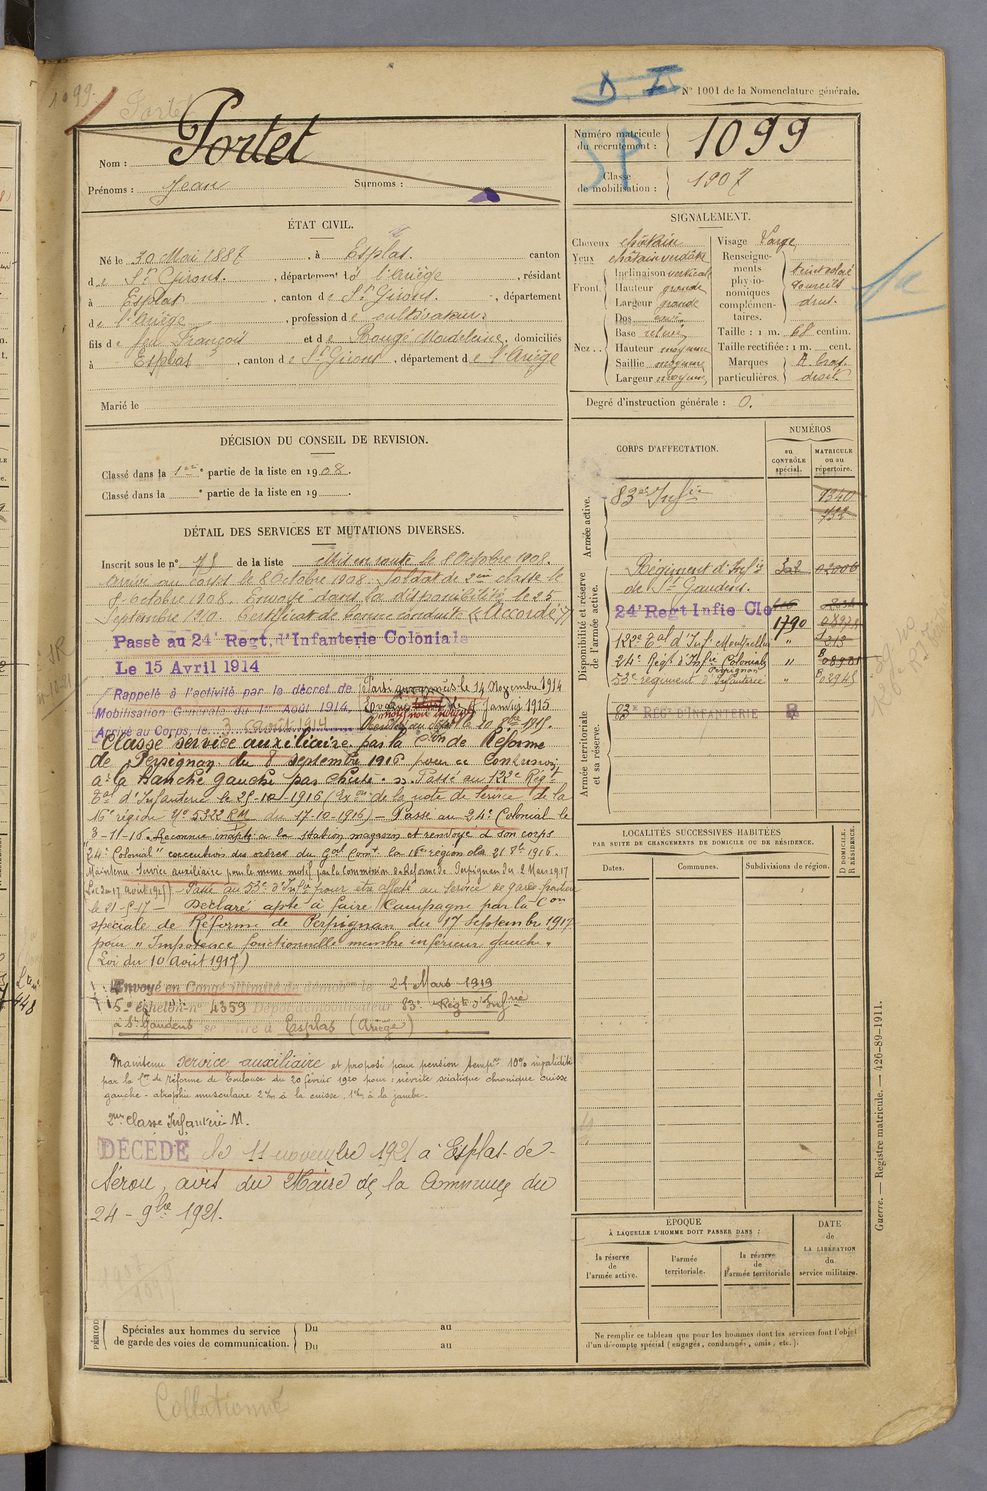 N° 1001 de la Nomenclature générale.
1099
Portet
D
Nom : Portet
Prénoms : Jean Surnoms :
Numéro matricule du recrutement : 1099
Classe de mobilisation : 1907
SP
ÉTAT CIVIL.
Né le 30 Mai 1887, à Esplas. canton
de St Girons. département de l'Ariège, résidant
à Esplas, canton de St Girons., département
de l'Ariège, profession de cultivateur.
fils de feu François et de Rougé Madeleine, domiciliés
à Esplas, canton de St Girons, département de l'Ariège
Marié le
SIGNALEMENT.
Cheveux châtain
Yeux
Front. Inclinaison verticale
Hauteur grande
Largeur grande
Nez.. Dos
Base relevée
Hauteur moyenne
Saillie moyenne
Largeur moyenne
Visage Large
Renseignements physionomiques complémentaires. teint coloré sourcils drus.
Taille : 1 m. 68 centim.
Taille rectifiée : 1 m. cent.
Marques particulières.
Degré d'instruction générale : 0.
DÉCISION DU CONSEIL DE REVISION.
Classé dans la 1ère partie de la liste en 1908.
Classé dans la ° partie de la liste en 19
DÉTAIL DES SERVICES ET MUTATIONS DIVERSES.
Inscrit sous le n° 78 de la liste Mis en route le 8 Octobre 1908.
Arrivé au corps le 8 Octobre 1908. Soldat de 2ème classe le
8 Octobre 1908. Envoyé dans la disponibilité le 25
Septembre 1910. Certificat de bonne conduite "Accordé"
Passé au 24e Regt. d'Infanterie Coloniale
Le 15 Avril 1914
Rappelé à l'activité par le décret de
Mobilisation Générale du 1er Août 1914,
Arrivé au Corps, le 3 Août 1914
Parti le 14 Novembre 1914
Janvier 1915
Classé service auxiliaire par la Con de Réforme
de Perpignan du 8 septembre 1916 pour
à la hanche gauche par chute. Passé au 122e Régt
Eal d'Infanterie le 25-10-1916 de la note de Service de la
16e région No 5322 RM du 17-10-1916) - Passé au 24e Colonial le
3-11-16. Reconnu inapte à la station magasin et renvoyé à son corps
"24e Colonial" exécution des ordres du Gal Comt la 16e région du 21 8bre 1916.
Maintenu Service auxiliaire pour le même motif par la Commission de Réforme de Perpignan du 2 Mars 1917
- Passé au 53e d'Infie pour être affecté au Service de garde
le 21-5-17 - Déclaré apte à faire Campagne par la Con
spéciale de Réforme de Perpignan du 17 Septembre 1917
pour "Impotence fonctionnelle membre inférieur gauche"
(Loi du 10 Août 1917)
Envoyé en Congé illimité de démob. le 21 Mars 1919
5e échelon n° 4359 Dépôt démobilisateur 83e Régt d'Infrie
à St Gaudens se retire à Esplas (Ariège)
Maintenu service auxiliaire et proposé pour pension tempre 10% invalidité
par la Con de réforme de Toulouse du 20 février 1920 pour : névrite sciatique chronique cuisse
gauche - atrophie musculaire 2cm à la cuisse, 1cm à la jambe.
2ème classe Infanterie M.
DÉCÉDÉ le 11 novembre 1921 à Esplas-de-
Sérou, avis du Maire de la Commune du
24-9bre 1921.
CORPS D'AFFECTATION.
NUMÉROS
au CONTRÔLE spécial.
MATRICULE ou au répertoire.
Armée active.
83e Infie 1340
Disponibilité et réserve de l'armée active.
Régiment d'Infie
de St Gaudens.
24e Regt Infie Cle
1790
122e Eal d'Inf. Montpellier "
24e Régt d'Infie Coloniale "
Perpignan
53e régiment d'Infanterie 02945
Armée territoriale et sa réserve.
83e REGt D'INFANTERIE
LOCALITÉS SUCCESSIVES HABITÉES
PAR SUITE DE CHANGEMENTS DE DOMICILE OU DE RÉSIDENCE.
Dates. Communes. Subdivisions de région.
D DOMICILE.
R RÉSIDENCE.
ÉPOQUE
À LAQUELLE L'HOMME DOIT PASSER DANS :
la réserve de l'armée active.
l'armée territoriale.
la réserve de l'armée territoriale
DATE
de
LA LIBÉRATION
du
service militaire.
Ne remplir ce tableau que pour les hommes dont les services font l'objet
d'un décompte spécial (engagés, condamnés, omis, etc.).
Spéciales aux hommes du service
de garde des voies de communication.
Du au
Du au
Guerre. — Registre matricule. — 426-89-1911.
Collationné